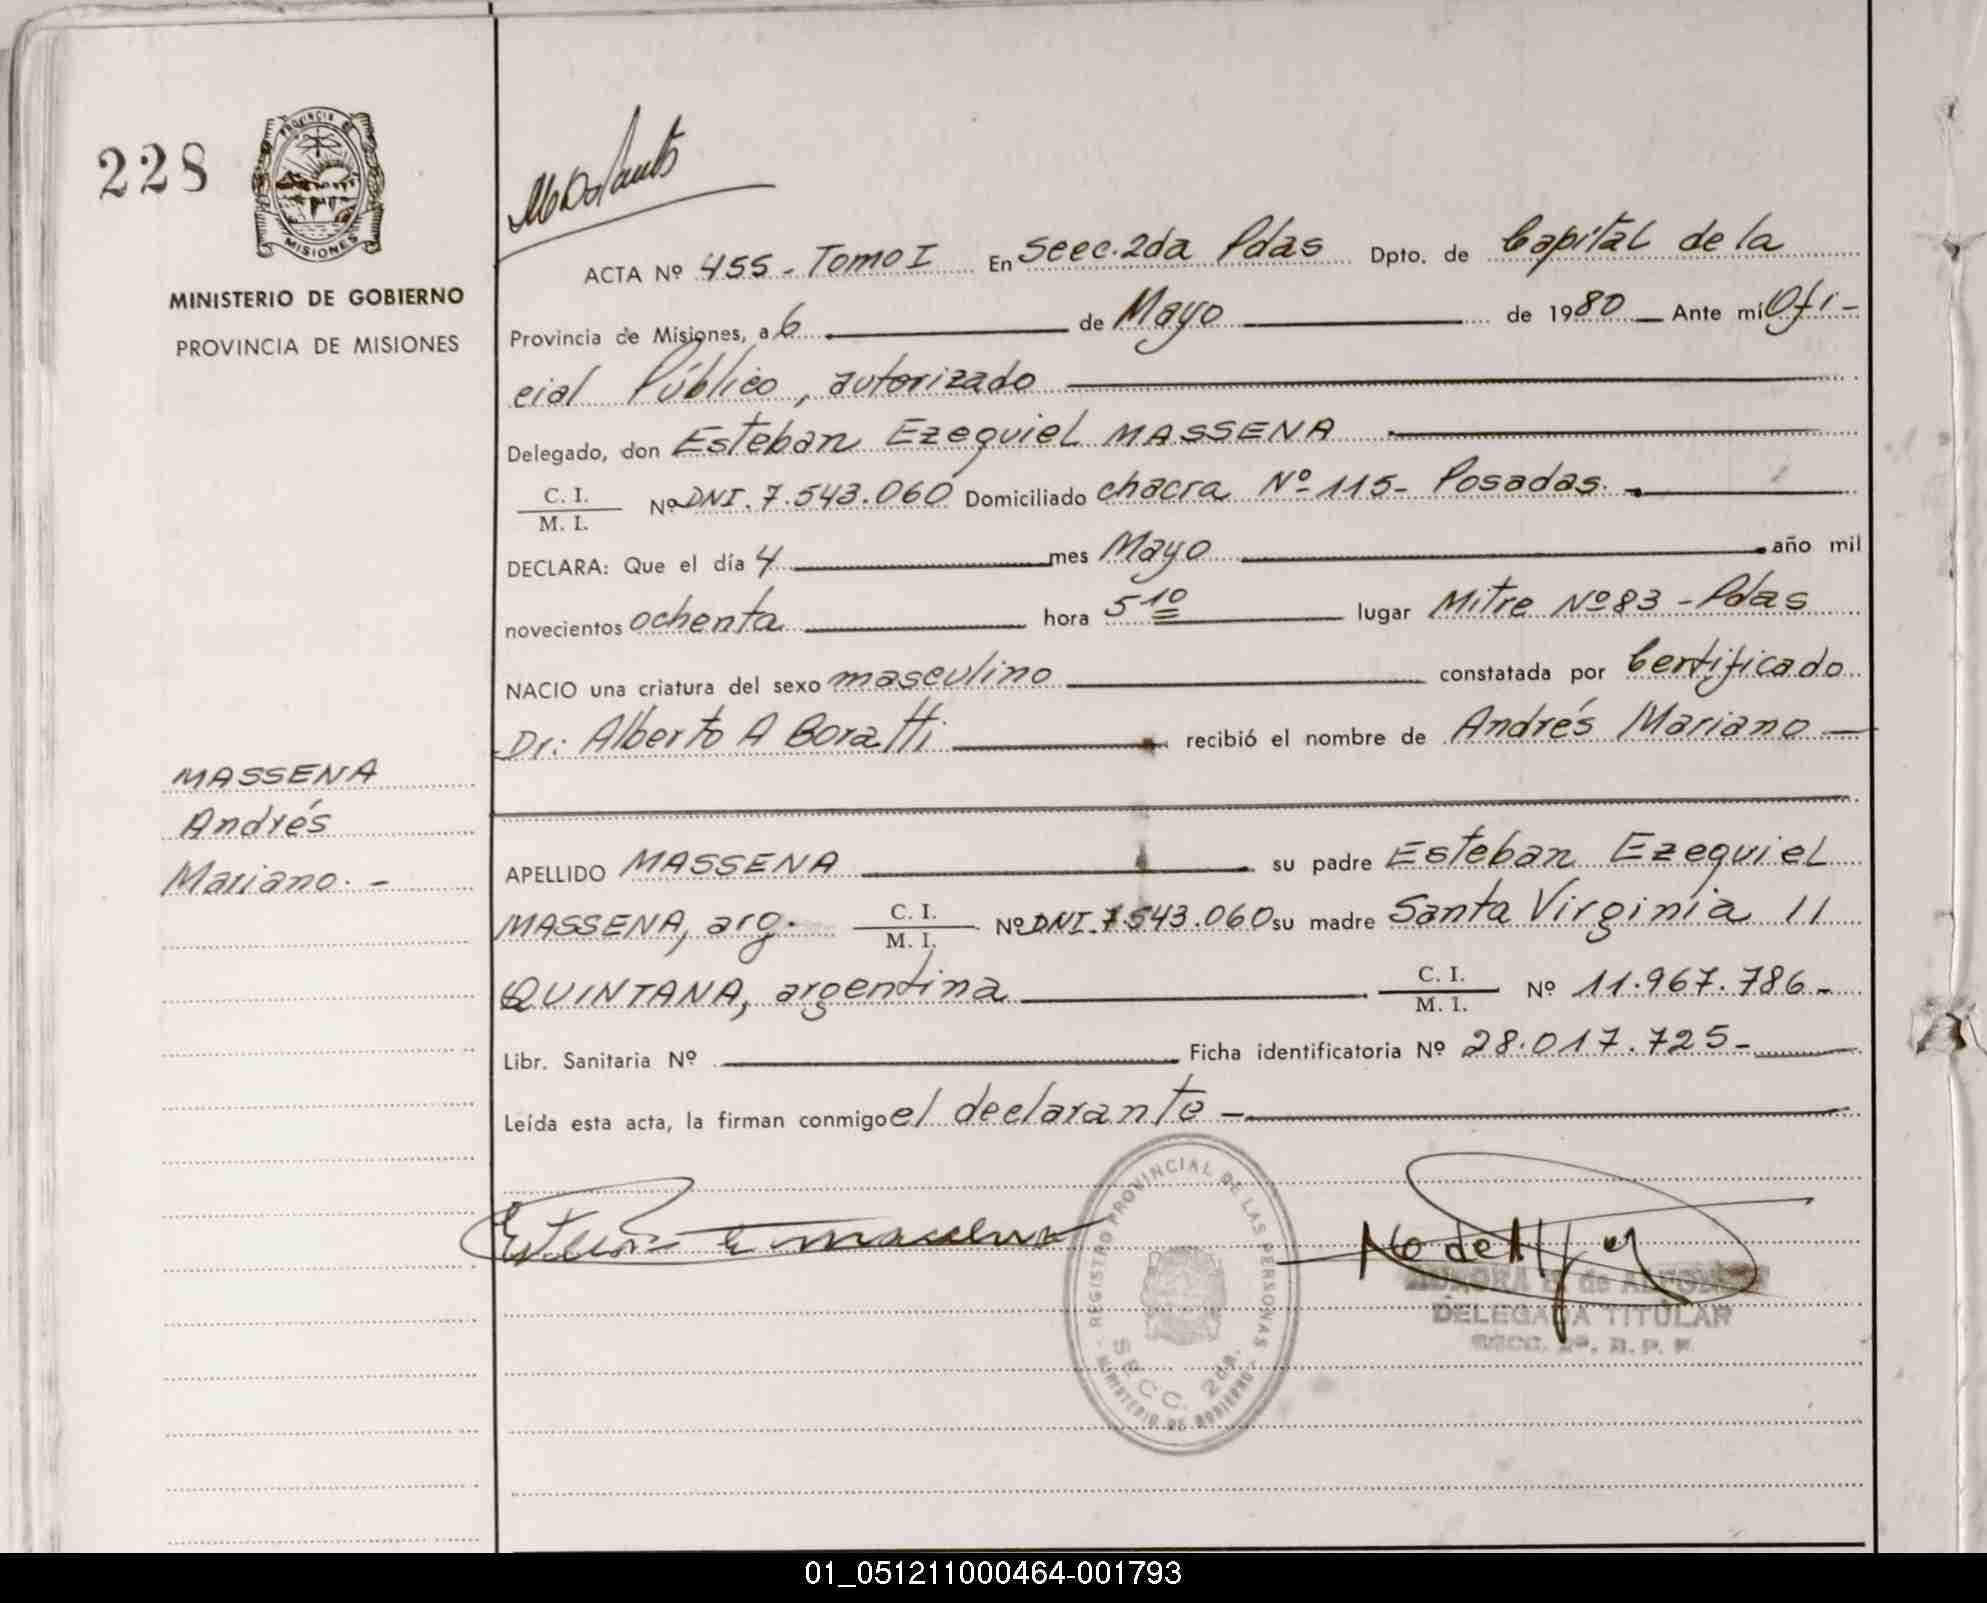 228
PROVINCIA DE
MISIONES
MINISTERIO DE GOBIERNO
PROVINCIA DE MISIONES
ACTA Nº 455 - Tomo I En Secc. 2da Pdas Dpto. de Capital de la
Provincia de Misiones, a 6 de Mayo de 1980 Ante mí Ofi-
cial Público, autorizado
Delegado, don Esteban Ezequiel MASSENA
C. I.
M. I.
Nº DNI. 7.543.060 Domiciliado chacra Nº 115 - Posadas. -
DECLARA: Que el día 4 mes Mayo año mil
novecientos ochenta hora 5 10 lugar Mitre Nº 83 - Pdas
NACIO una criatura del sexo masculino constatada por Certificado
Dr: Alberto A Boratti recibió el nombre de Andrés Mariano
MASSENA
Andrés
Mariano. -
APELLIDO MASSENA su padre Esteban Ezequiel
MASSENA, arg. C. I. M. I. Nº DNI. 7.543.060 su madre Santa Virginia 11
QUINTANA, argentina C. I. M. I. Nº 11.967.786 -
Libr. Sanitaria Nº Ficha identificatoria Nº 28.017.725 -
Leída esta acta, la firman conmigo el declarante -
REGISTRO PROVINCIAL DE LAS PERSONAS
SECC. 2da.
MINISTERIO DE GOBIERNO
DELEGADA TITULAR
SECC. 2ª. R. P. P.
01_051211000464-001793